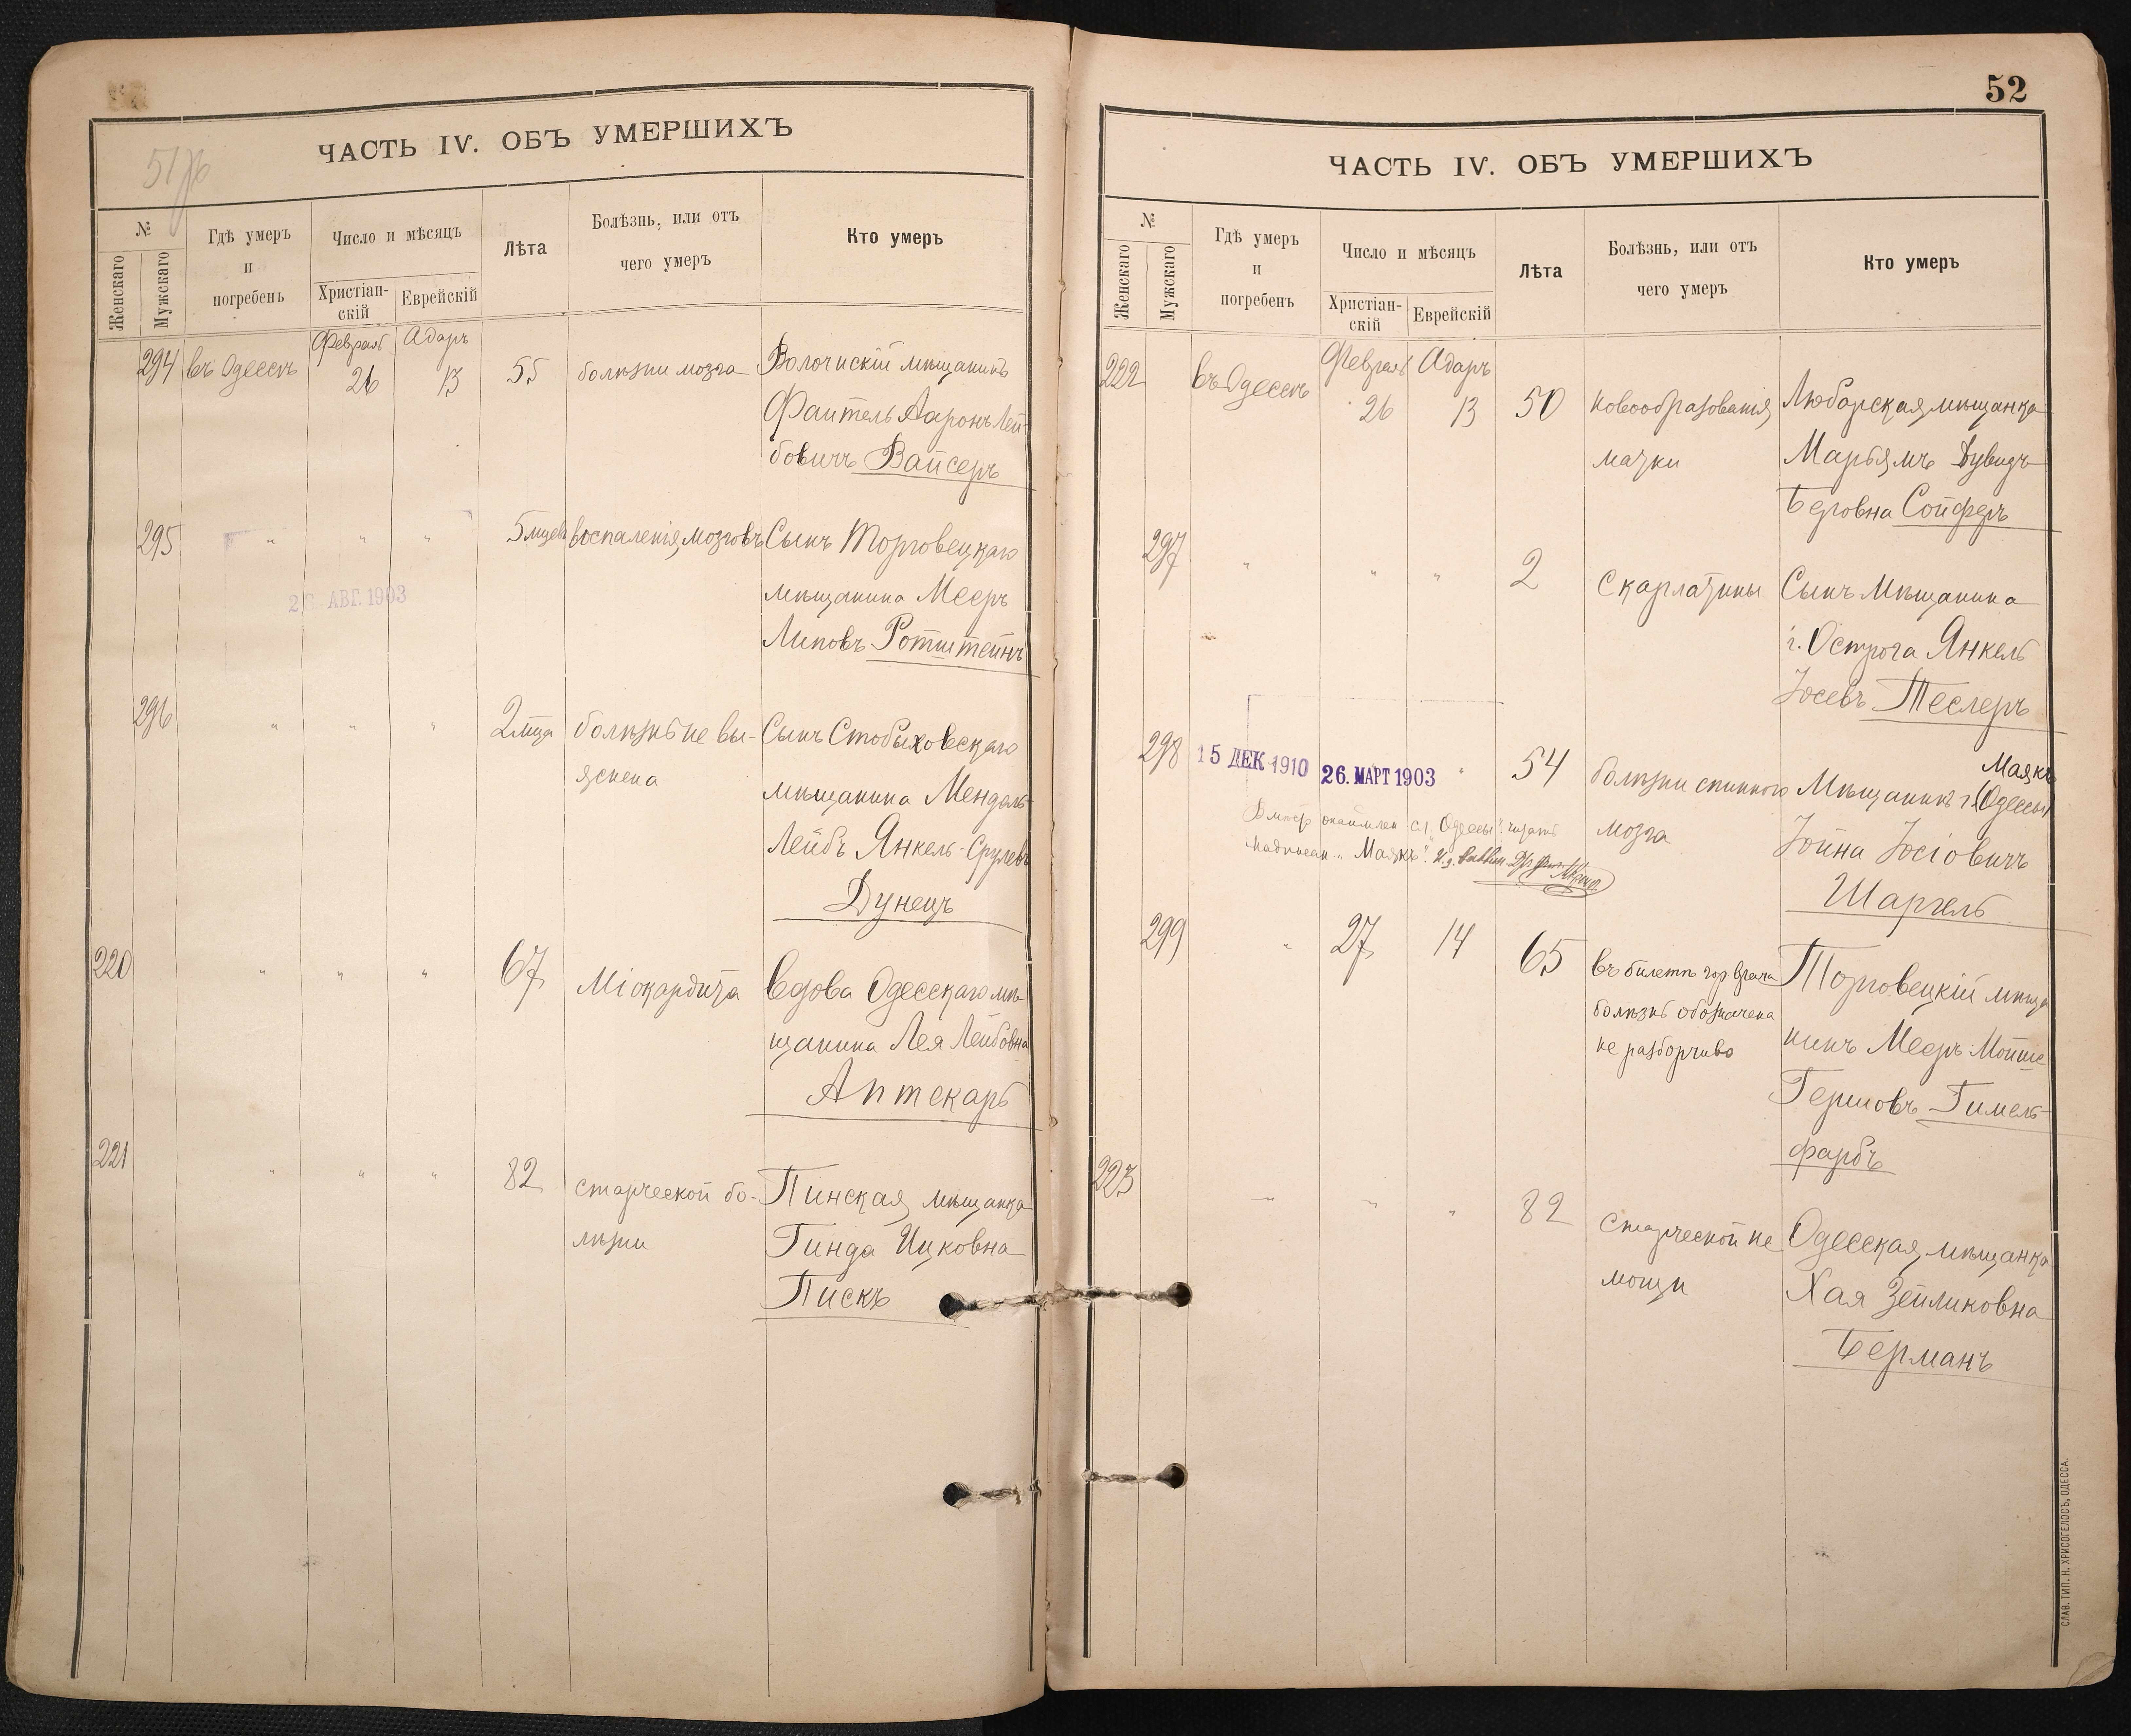 ЧАСТЬ IV. ОБЪ УМЕРШИХЪ
№
Женскаго
Мужскаго
Гдѣ умеръ
и
погребенъ
Число и мѣсяцъ
Христіан-
скій
Еврейскій
Лѣта
Болѣзнь, или отъ
чего умеръ
Кто умеръ
294 въ Одессѣ Февраля 26 Адаръ 13 55 болѣзни мозга Волочискій мѣщанинъ
Файтель Ааронъ Лей-
бовичъ Вайсеръ
295 " " " 5 мцевъ воспаленія мозговъ Сынъ Торговецкаго
мѣщанина Мееръ
Липовъ Ротштейнъ
АВГ. 1903
296 " " " 2 мца болѣзнь не вы-
яснена
Сынъ Стобыховскаго
мѣщанина Мендель-
Лейбъ Янкель-Срулевъ
Дунецъ
220 " " " 67 Міокардита Вдова Одесскаго мѣ-
щанина Лея Лейбовна
Аптекарь
221 " " " 82 старческой бо-
лѣзни
Пинская мѣщанка
Гинда Ицковна
Пискъ
52
ЧАСТЬ IV. ОБЪ УМЕРШИХЪ
№
Женскаго
Мужскаго
Гдѣ умеръ
и
погребенъ
Число и мѣсяцъ
Христіан-
скій
Еврейскій
Лѣта
Болѣзнь, или отъ
чего умеръ
Кто умеръ
222 въ Одессѣ Февраля 26 Адаръ 13 50 новообразованія
матки
Любарская мѣщанка
Марьямъ Дувидъ-
Беровна Сойферъ
297 " " " 2 Скарлатины Сынъ Мѣщанина
г. Острога Янкель
Іосевъ Теслеръ
298 15 ДЕК 1910 26. МАРТ 1903 " 54 болѣзни спинного
мозга
Маякъ
Мѣщанинъ г. (Одессы)
Іойна Іосіовичъ
Шаргель
"Одессы" читать
"Маякъ".
299 " 27 14 65 въ билетѣ гор врача
болѣзнь обозначена
не разборчиво
Торговецкій мѣща
нинъ Мееръ Мойше
Гершовъ Гимель-
фарбъ
223 " " " 82 Старческой не
мощи
Одесская мѣщанка
Хая Зейликовна
Берманъ
СЛАВ. ТИП. Н. ХРИСОГЕЛОСЪ, ОДЕССА.